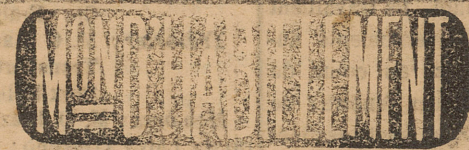 MON D'HABILLEMENT